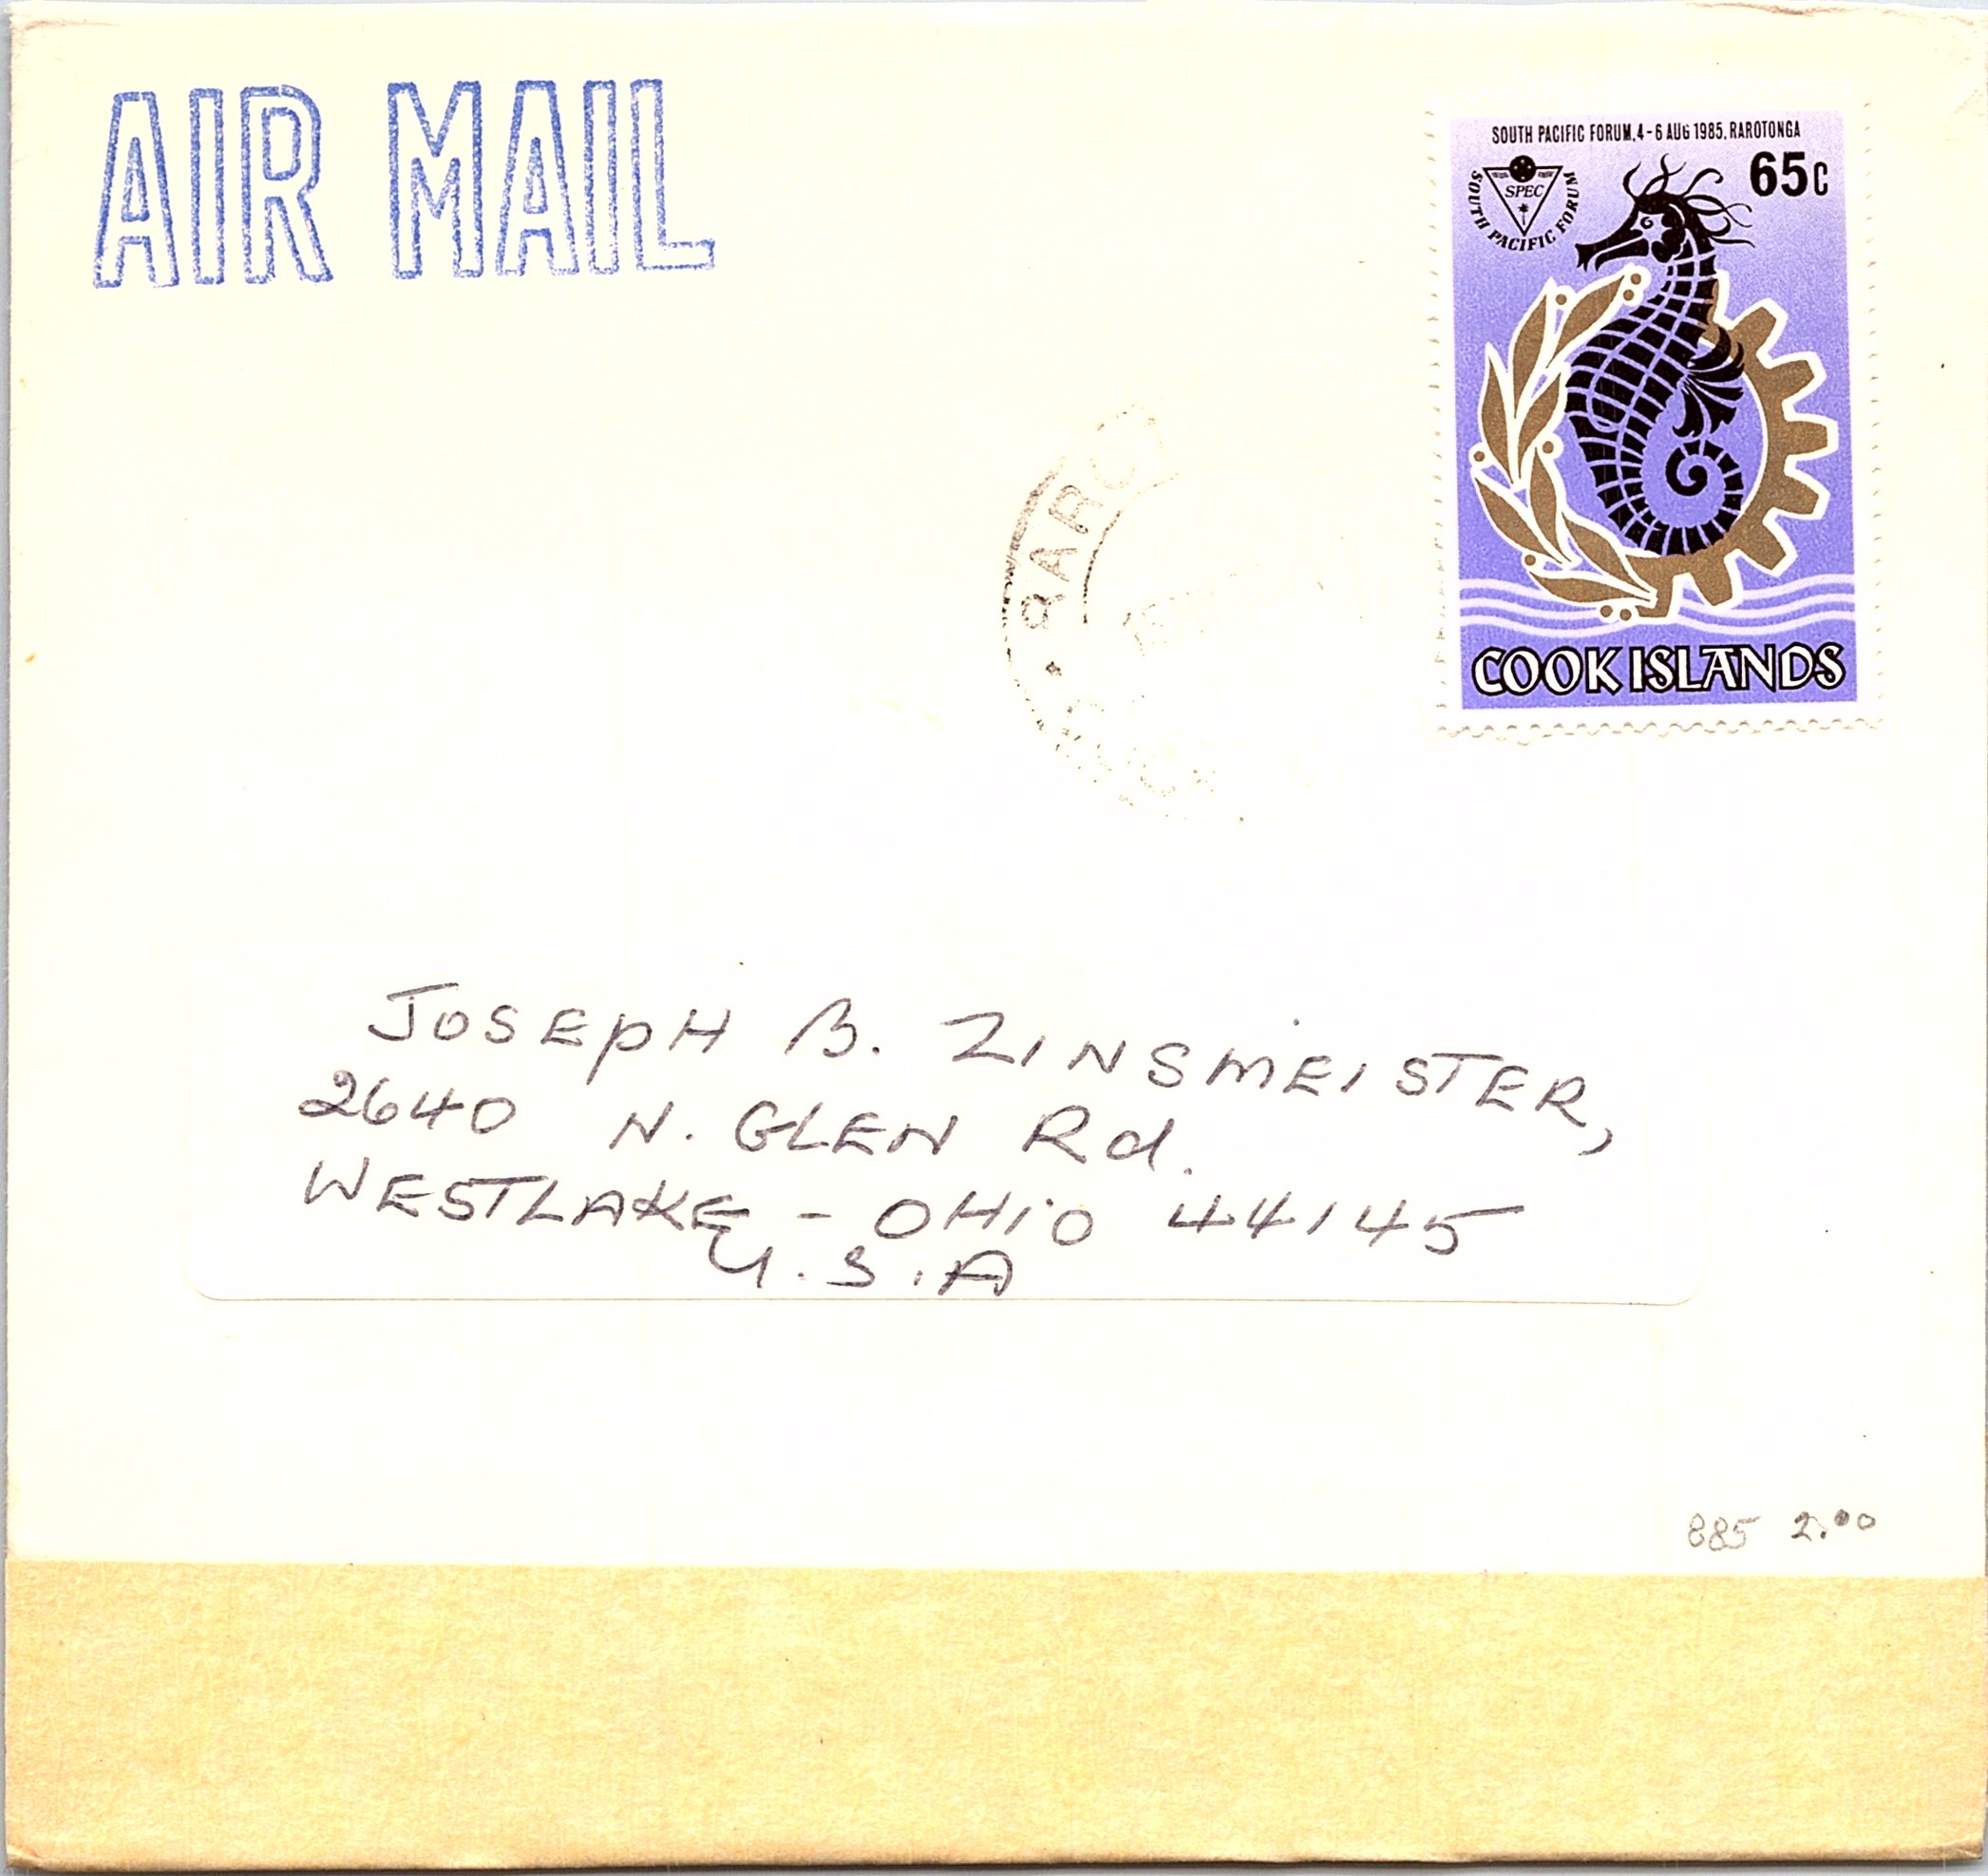 AIR MAIL
SOUTH PACIFIC FORUM, 4-6 AUG 1985, RAROTONGA
65c
SPEC
SOUTH PACIFIC FORUM
COOK ISLANDS
JOSEPH B. ZINSMEISTER,
2640 N. GLEN Rd.
WESTLAKE - OHIO 44145
U.S.A
885 2.00